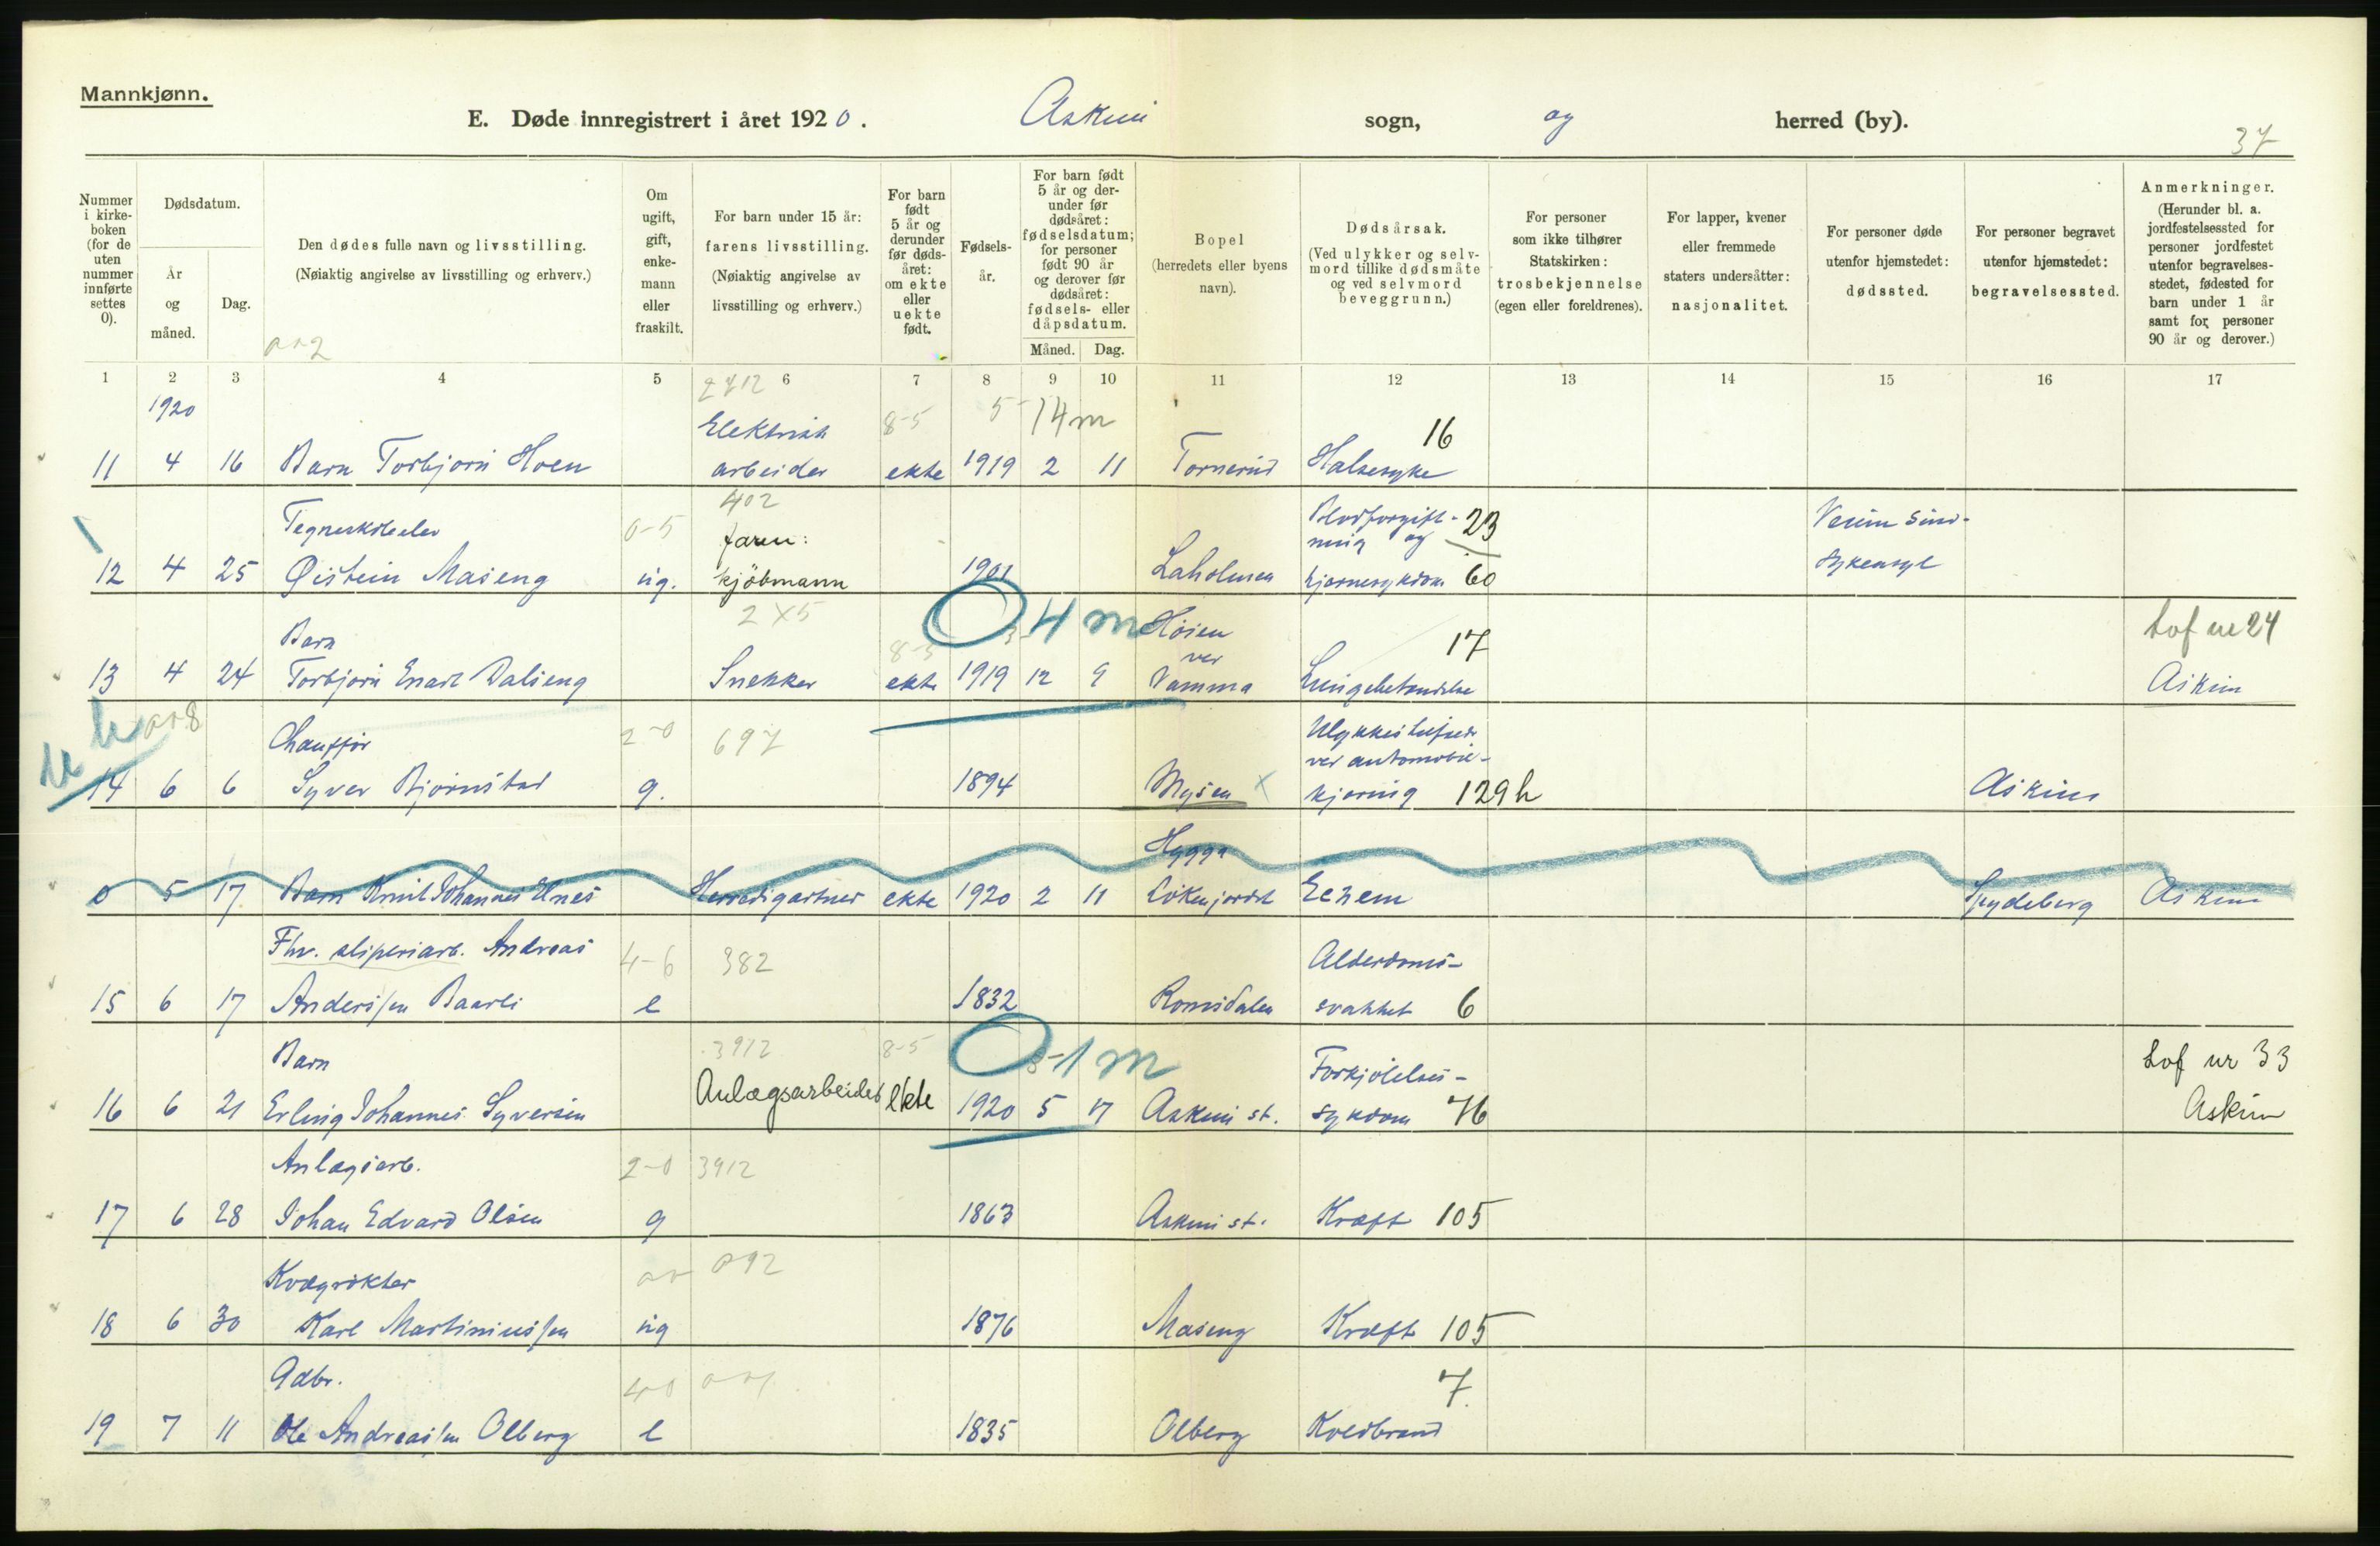 Mannkjønn.
E. Døde innregistrert i året 1920. Askim sogn, og herred (by).
37
Nummer i kirkeboken (for de uten nummer innførte settes 0).
Dødsdatum.
År og måned.
Dag.
Den dødes fulle navn og livsstilling.
(Nøiaktig angivelse av livsstilling og erhverv.)
Om ugift, gift, enkemann eller fraskilt.
For barn under 15 år: farens livsstilling.
(Nøiaktig angivelse av livsstilling og erhverv.)
For barn født 5 år og derunder før dødsåret: om ekte eller uekte født.
Fødselsår.
For barn født 5 år og derunder før dødsåret: fødselsdatum; for personer født 90 år og derover før dødsåret: fødsels- eller dåpsdatum.
Måned. Dag.
Bopel
(herredets eller byens navn).
Dødsårsak.
(Ved ulykker og selvmord tillike dødsmåte og ved selvmord beveggrunn.)
For personer som ikke tilhører Statskirken: trosbekjennelse (egen eller foreldrenes).
For lapper, kvener eller fremmede staters undersåtter: nasjonalitet.
For personer døde utenfor hjemstedet: dødssted.
For personer begravet utenfor hjemstedet: begravelsessted.
Anmerkninger.
(Herunder bl. a. jordfestelsessted for personer jordfestet utenfor begravelsesstedet, fødested for barn under 1 år samt for personer 90 år og derover.)
1 2 3 4 5 6 7 8 9 10 11 12 13 14 15 16 17
1920 Elektrisk 8-5 5- 14 m 16
11 4 16 Barn Torbjørn Hoen arbeider ekte 1919 2 11 Tornerud Halsesyke
402
Tegneskoleelev 0-5 faren: Blodforgift- 23 Veum Sind-
ning og sykeasyl
12 4 25 Øistein Maseng ug. kjöbmann 1901 Laholmen hjernesykdom 60
Barn 2x5 0 4 m Høien 17 Lof nr 24
ver
13 4 24 Torbjørn Enart Dalseng Snekker ekte 1919 12 9 Vamma Lungebetendelse Askim
Chauffør 2-0 697 Ulykkestilfælde
ved automobil-
14 6 6 Syver Bjørnstad g. 1894 Mysen x kjøring 129h Askim
Hygga
0 5 17 Barn Knut Johannes Elnes Herredsgartner ekte 1920 2 11 Løkenjordet Eczem Spydeberg Askim
Fhv. sliperiarb. Andreas 4-6 382 Alderdoms-
15 6 17 Anderssen Baarli e 1832 Romsdalen svakhet 6
Barn 3912 8-5 0 1 m Forkjølelses- Lof nr 33
16 6 21 Erling Johannes Syversen Anlægsarbeider ekte 1920 5 17 Askim st. sykdom 76 Askim
Anlægsarb. 2-0 3912
17 6 28 Johan Edvard Olsen g 1863 Askim st. Kræft 105
Kvægrøkter
18 6 30 Karl Martiniussen ug 1876 Maseng Kræft 105
Gdbr. 4-0 7
19 7 11 Ole Andreassen Olberg e 1835 Olberg Koldbrand